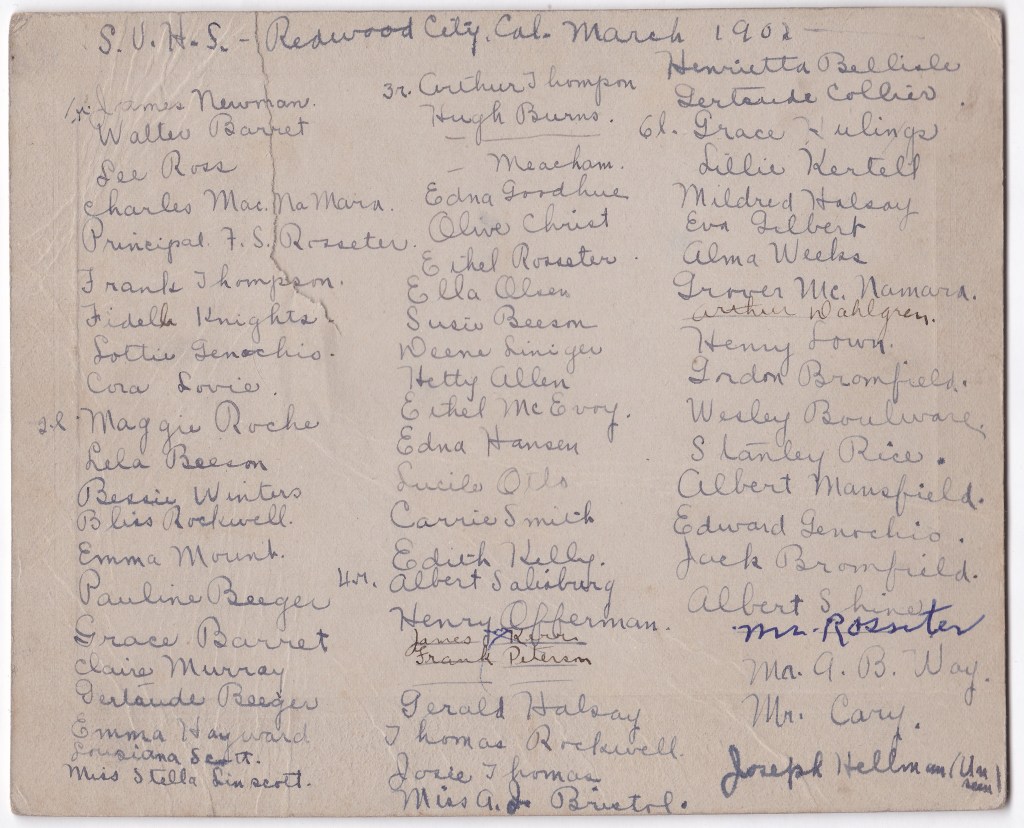 S.U.H.S. - Redwood City, Cal. March 1902
1r. James Newman.
Walter Barret
Lee Ross
Charles Mac.NaMara.
Principal F.S. Rosseter.
Frank Thompson.
Fidella Knights.
Lottie Genochio.
Cora Lovie.
2l. Maggie Roche
Lela Beeson
Bessie Winters
Bliss Rockwell.
Emma Mount.
Pauline Beeger
Grace Barret
Claire Murray
Gertrude Beeger
Emma Hayward
Louisiana Scott.
Miss Stella Linscott.
3r. Arthur Thompson
Hugh Burns.
— Meacham.
Edna Goodhue
Olive Christ
Ethel Rosseter.
Ella Olsen
Susie Beeson
Weene Liniger
Hetty Allen
Ethel McEvoy.
Edna Hansen
Lucile Otis
Carrie Smith
Edith Kelly.
4r. Albert Salisburg
Henry Offerman.
James
Frank Peterson
Gerald Halsay
Thomas Rockwell.
Josie Thomas
Miss A.J. Bristol.
Henrietta Bellisle
Gertrude Collier.
6l. Grace Hulings
Lillie Kertell
Mildred Halsay
Eva Gilbert
Alma Weeks
Grover Mc. Namara.
Arthur Wahlgren.
Henry Lown.
Gordon Bromfield.
Wesley Boulware.
Stanley Rice.
Albert Mansfield.
Edward Genochio.
Jack Bromfield.
Albert Shine
Mr. Rosseter
Mr. A. B. Way.
Mr. Cary.
Joseph Hellman (Un
seen)